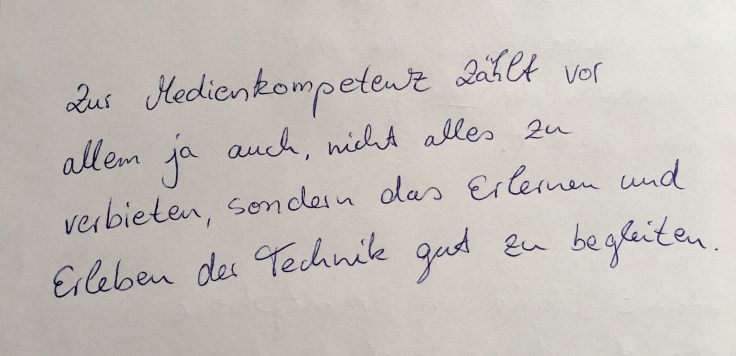 Zur Medienkompetenz zählt vor
allem ja auch, nicht alles zu
verbieten, sondern das Erlernen und
Erleben der Technik gut zu begleiten.